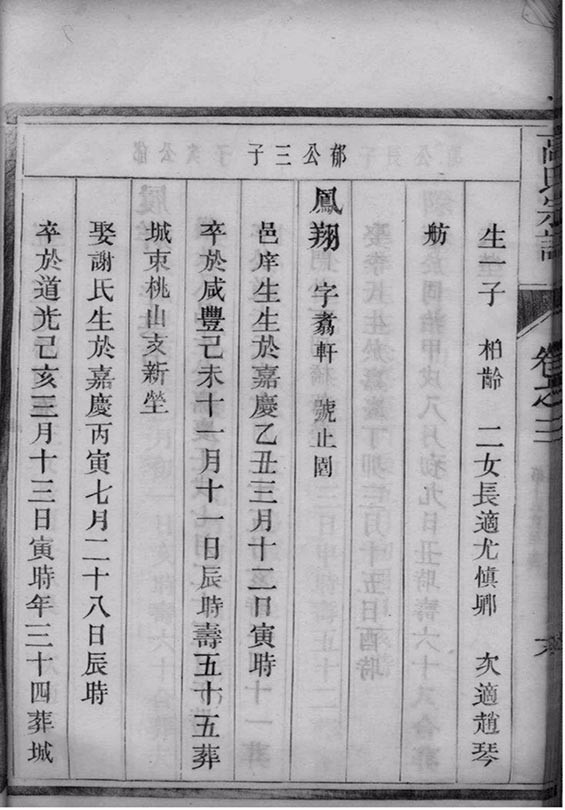 高氏宗譜
卷之三
郁公三子
生一子 柏齡 二女長適尤慎卿 次適趙琴
舫
鳳翔 字翥軒 號止園
邑庠生生於嘉慶乙丑三月十二日寅時
卒於咸豐己未十一月十一日辰時壽五十五葬
城東桃山支新塋
娶謝氏生於嘉慶丙寅七月二十八日辰時
卒於道光己亥三月十三日寅時年三十四葬城